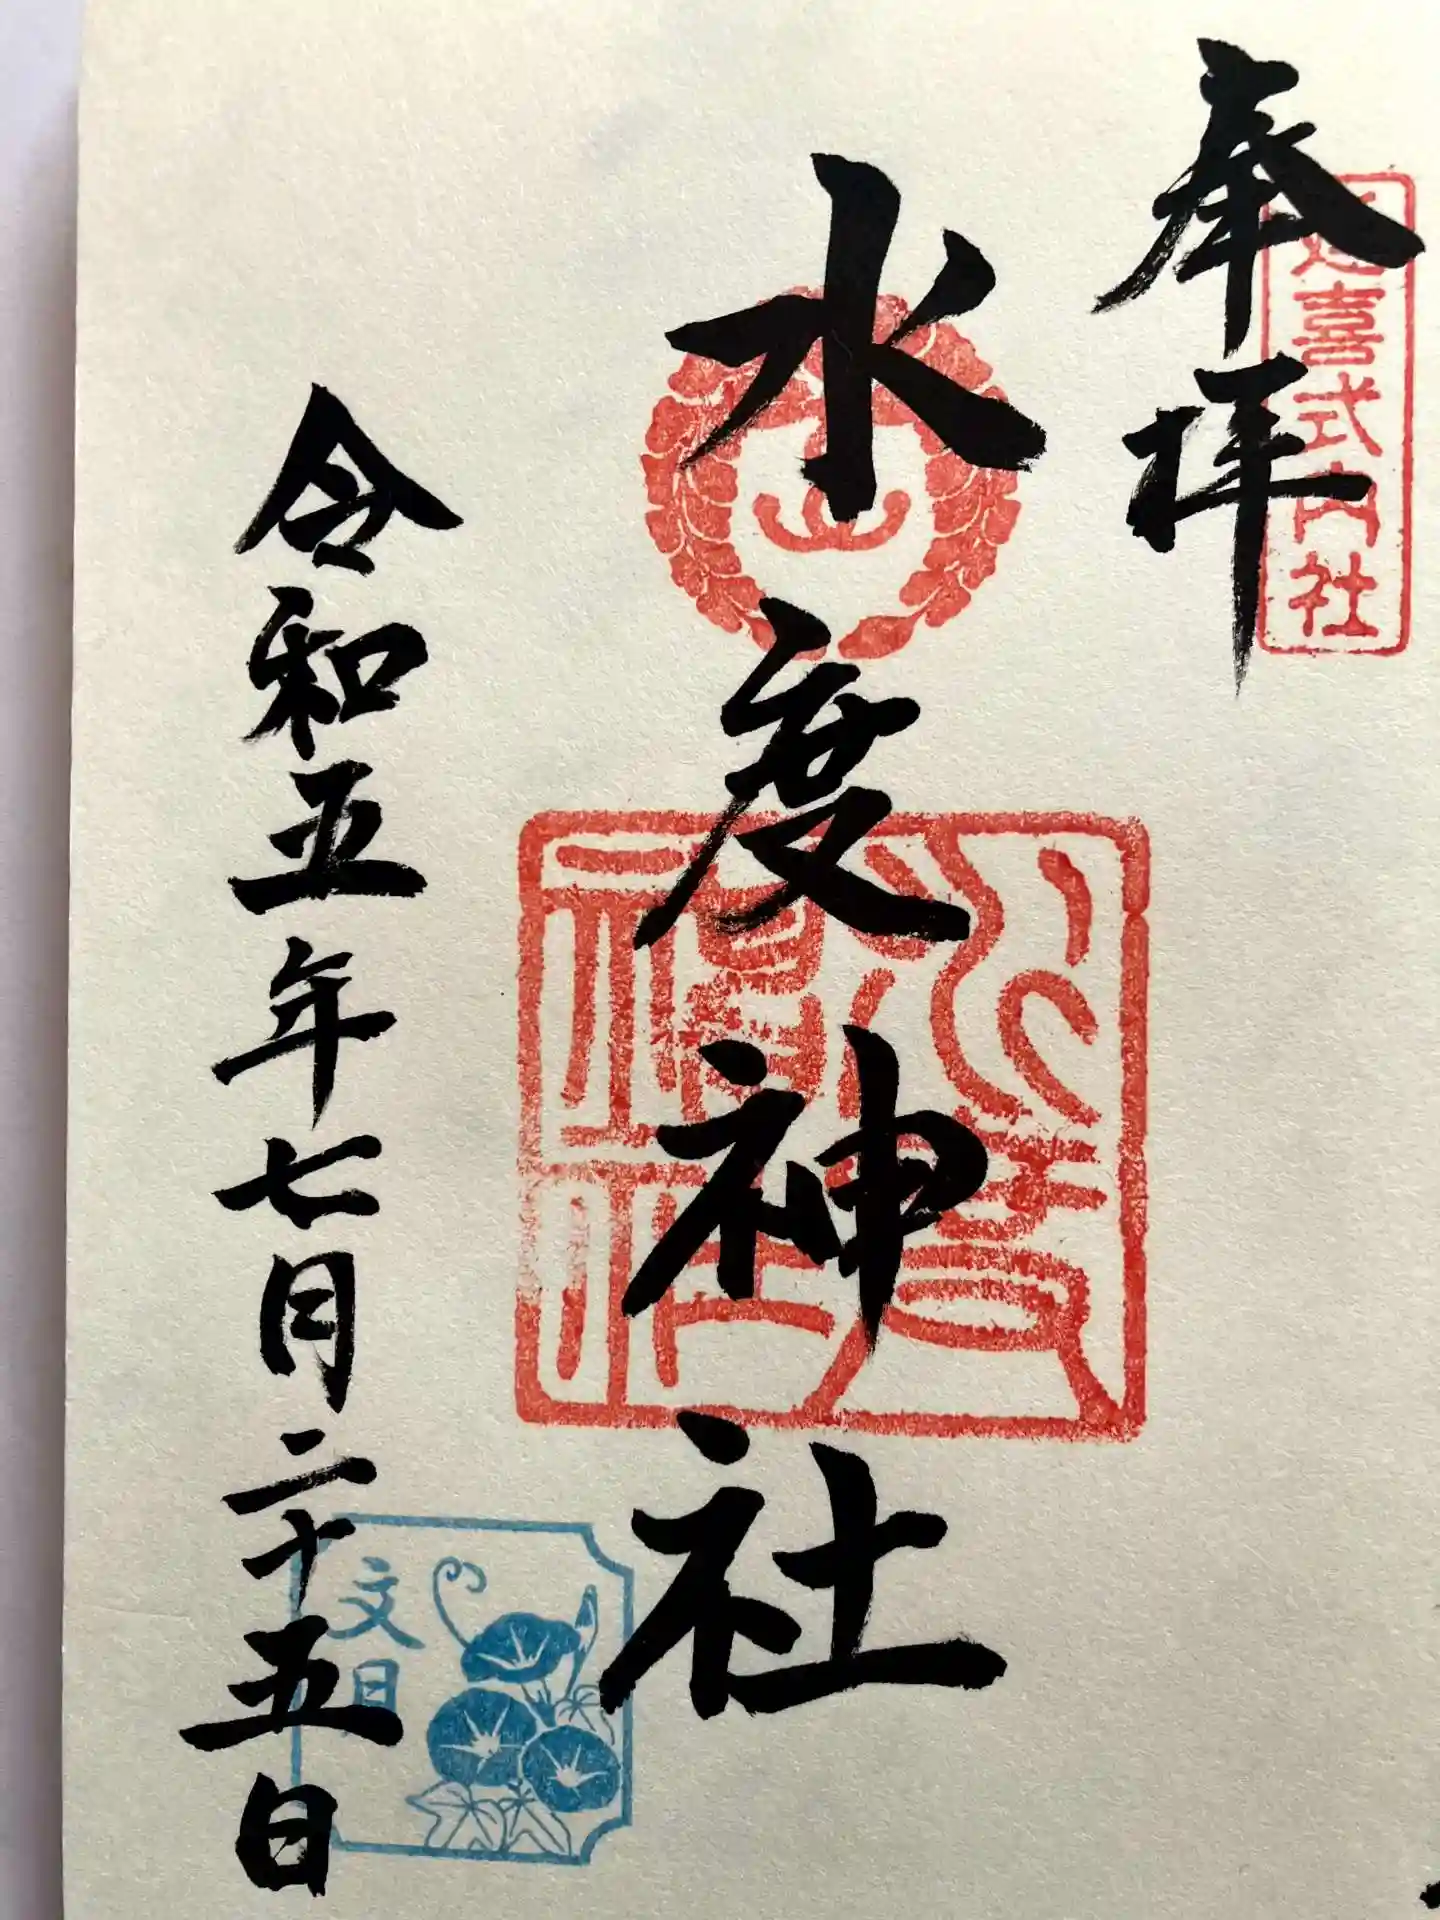 奉拝
延喜式内社
水度神社
令和五年七月二十五日
文月